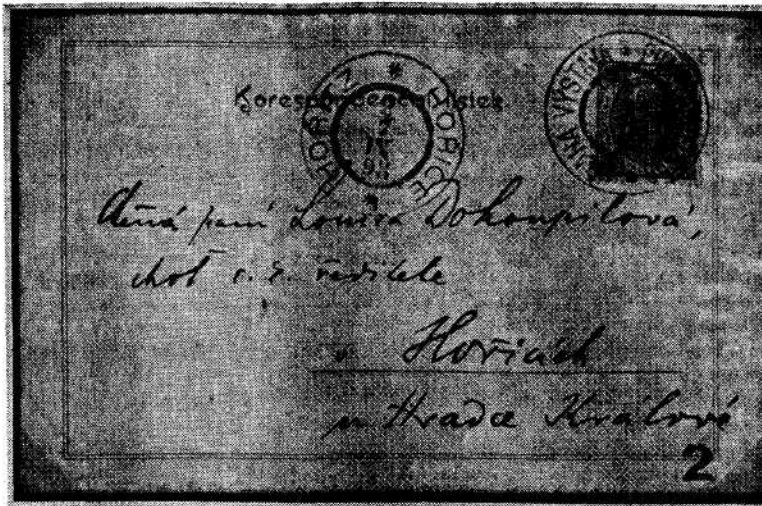 Korespondenční lístek
HOŘICE * HOŘITZ *
Ctěná paní Louisa Dokoupilová,
choť c. k. ředitele
v Hořicích
u Hradce Králové
2